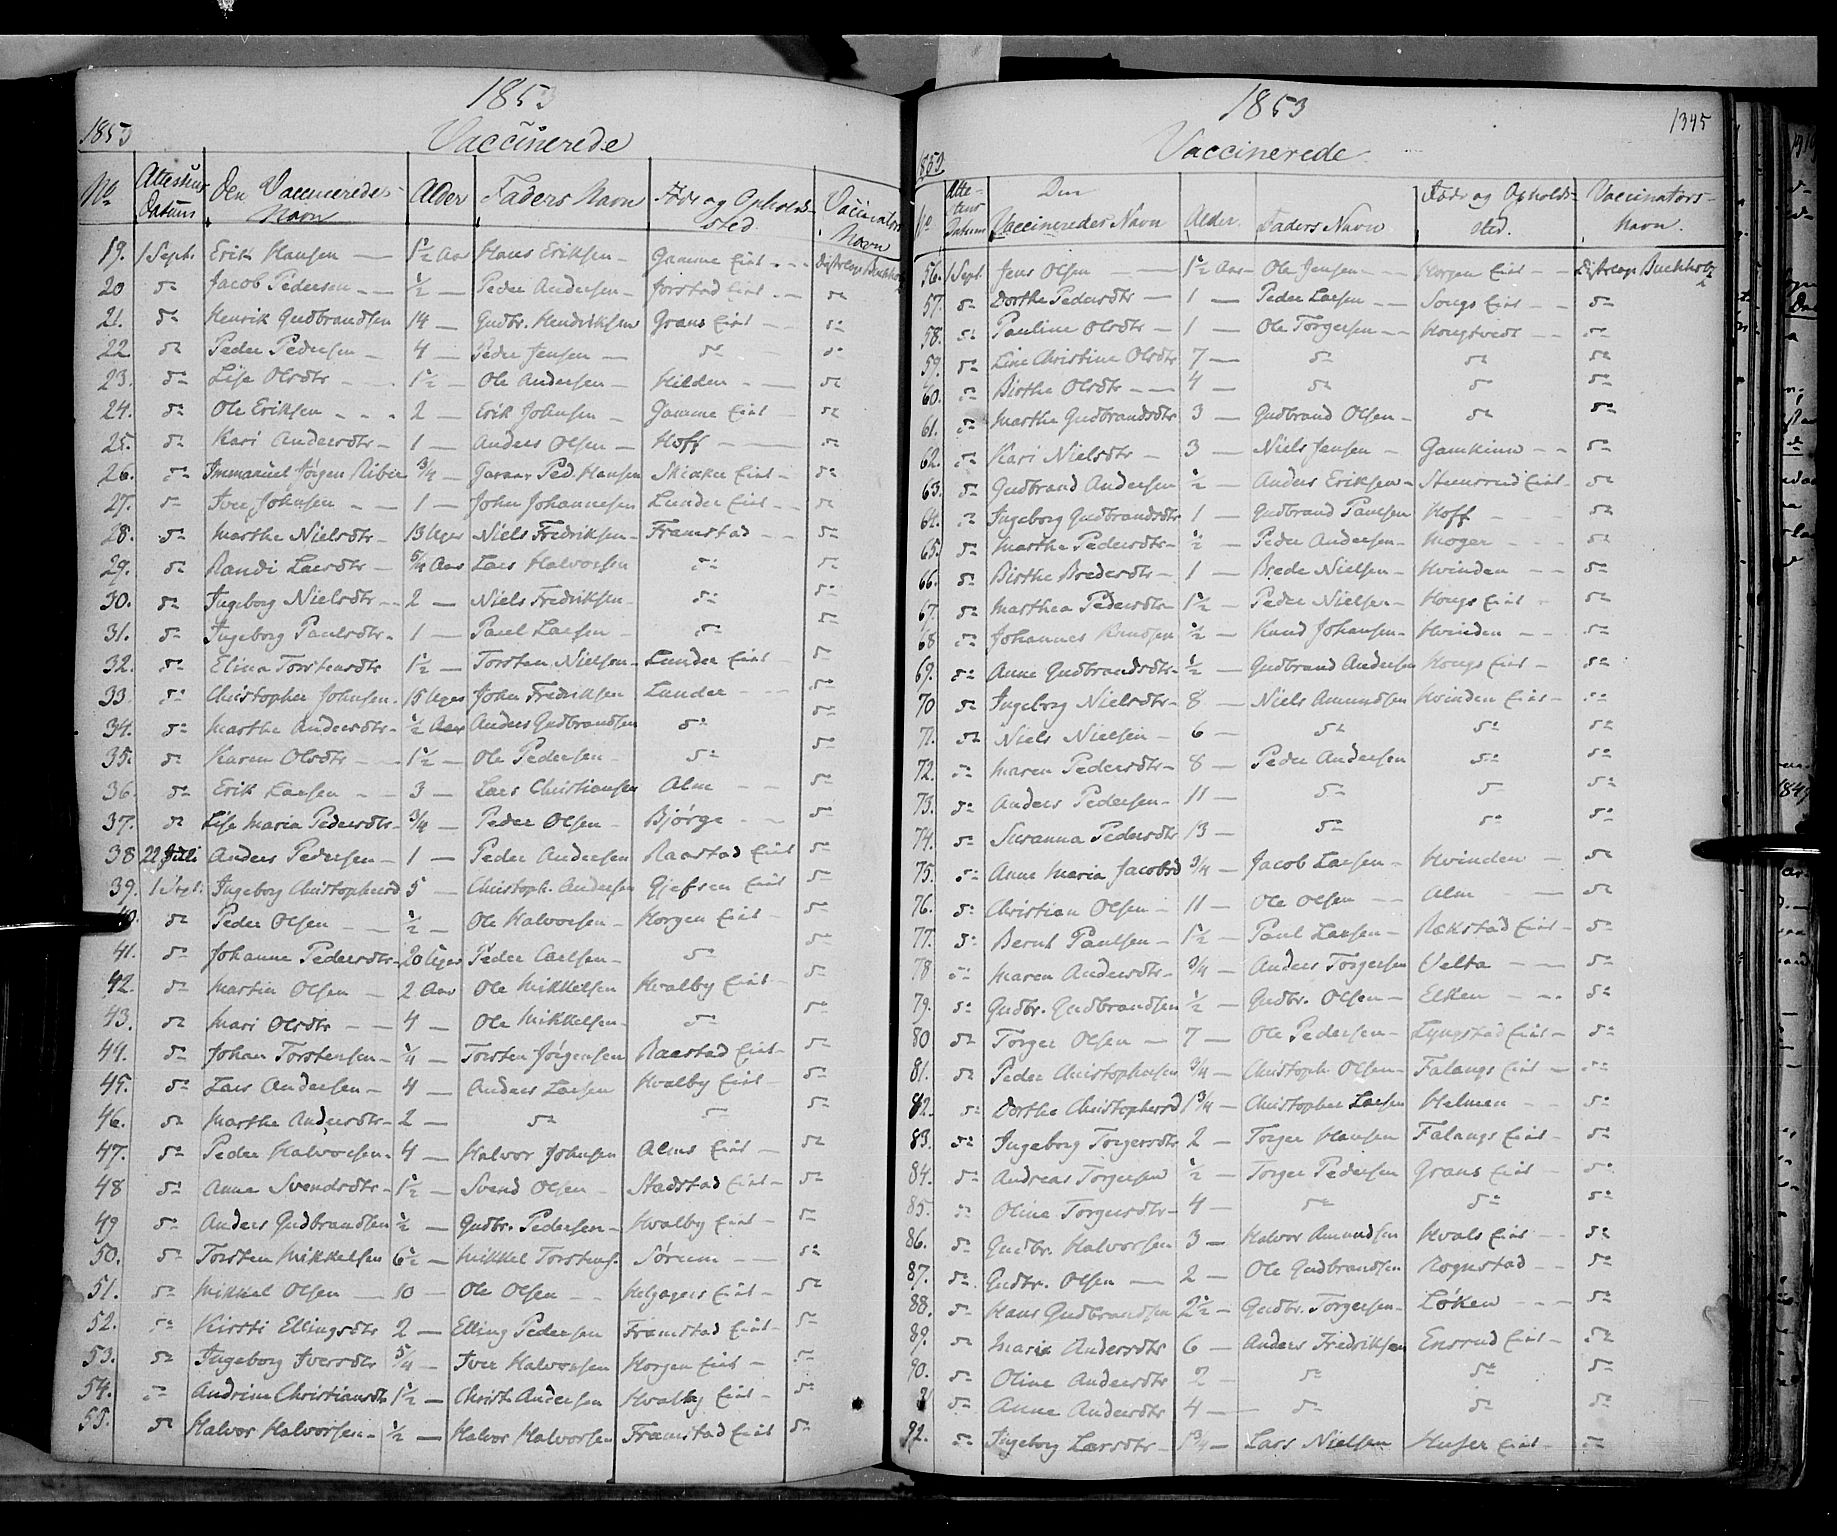 1853
1853
Vaccinerede
No Attestens Datum Den Vaccineredes Navn Alder Faders Navn Føde og Opholds-sted Vaccinators Navn
19. 1 Sept. Erik Hansen — 1½ Aar Hans Eriksen — Gamme Eiet - - Distrlæge Buchholz
20 do Jacob Pedersen — ½ — Peder Andersen — Jorstad Eiet - - do
21. do Henrik Gudbrandsen 14 — Gudbr. Hendriksen Grans Eiet - do
22 do Peder Pedersen — 4 — Peder Jensen — do do
23. do Lise Olsdtr - - 1½ — Ole Andersen — Hilden - — do
24. do Ole Eriksen - - - 2 — Erik Johnsen — Gamme Eiet - do
25. do Kari Andersdtr — 1 — Anders Olsen — Hoff - — do
26. do Immanuel Jørgen Riber ¾ — Ped. Hansen Skiaker Eiet - do
27. do Iver Johnsen - — 1 — John Johannesen Lunder Eiet - - do
28. do Marthe Nielsdtr — 13 Uger Niels Fredriksen — Framstad - - do
29. do Randi Larsdtr — 5/4 Aar Lars Halvorsen do do
30. do Ingeborg Nielsdtr - - 2 — Niels Fredriksen — do do
31. do Ingeborg Paulsdtr — 1 — Paul Larsen — do do
32. do Elina Torstensdtr 1½ — Torsten Nielsen — Lunder Eiet do
33. do Christopher Johnsen — 15 Uger John Fredriksen Lunder - - do
34. do Marthe Andersdtr — ½ Aar Anders Gudbrandsen do do
35. do Karen Olsdtr — 1½ — Ole Pedersen — do do
36. do Erik Larsen - - 3 — Lars Christiansen Alm - - do
37. do Lise Maria Pedersdtr — ¾ — Peder Olsen — Bjørge - - do
38 22 Juli Anders Pedersen — 1 — Peder Andersen Raastad Eiet do
39. 1 Sept. Ingeborg Christophersd 5 — Christoph. Andersen Gjefsen Eiet do
40. do Peder Olsen - — ½ — Ole Halvorsen — Horgen Eiet - do
41. do Johanne Pedersdtr — 20 Uger Peder Carlsen — do do
42. do Martin Olsen — 2 Aar Ole Mikkelsen Hvalby Eiet - do
43. do Mari Olsdtr - — 4 — Ole Mikkelsen — do do
44. do Johan Torstensen — ¼ — Torsten Jørgensen Raastad Eiet - do
45. do Lars Andersen — 4 — Anders Larsen Hvalby Eiet - do
46. do Marthe Andersdtr — 2 — do do do
47. do Peder Halvorsen - 4 — Halvor Johnsen Alms Eiet - do
48 do Anne Svendsdtr — 1½ — Svend Olsen — Stadstad Eiet - do
49 do Anders Gudbrandsen ½ — Gudbr. Pedersen — Hvalby Eiet - do
50. do Torsten Mikkelsen 6½ — Mikkel Torstens. Sørum - — do
51. do Mikkel Olsen — 10 — Ole Olsen - - Helgagers Eiet - do
52. do Kirsti Ellingsdtr 2 — Elling Pedersen Framstad Eiet - do
53. do Ingeborg Iversdtr 5/4 — Iver Halvorsen Horgen Eiet — do
54. do Andrine Christiansdtr 1½ — Christ. Andersen Hvalby Eiet - do
55. do Halvor Halvorsen — ½ — Halvor Halvorsen Framstad Eiet do
1853
1345
1853
Vaccinerede
No Attestens Datum Den Vaccineredes Navn Alder. Faders Navn Føde og Opholds-sted. Vaccinators-Navn.
56. 1 Sept. Jens Olsen — — 1½ Aar — Ole Jensen - — Horgen Eiet - - Distrlæge Buchholz
57. do Dorthe Pedersdtr — 1 — Peder Larsen - — Songs Eiet - - do
58. do Pauline Olsdtr — 1 — Ole Torgersen - - Hougtvedt - - do
59. do Line Christine Olsdtr 7 — do do do
60. do Birthe Olsdtr - — 4 — do do do
61. do Marthe Gudbrandsdtr 3 — Gudbrand Olsen — do do
62. do Kari Nielsdtr — 3 — Niels Jensen — Gamkinn - - do
63. do Gudbrand Andersen ½ — Anders Eriksen — Steensrud Eiet - do
64. do Ingeborg Gudbrandsdtr 1 — Gudbrand Paulsen Hoff - - do
65. do Marthe Pedersdtr — ½ — Peder Andersen — Moger - - - do
66. do Birthe Bredesdtr — 1 — Brede Nielsen — Hvinden - - do
67. do Marthea Pedersdtr 1½ — Peder Nielsen — Hougs Eiet - do
68 do Johannes Knudsen ½ — Knud Johansen — Hvinden - - do
69. do Anne Gudbrandsdtr — ½ — Gudbrand Andersen Hougs Eiet - do
70 do Ingeborg Nielsdtr — 8 — Niels Amundsen Hvinden Eiet - do
71. do Niels Nielsen — 6 — do do do
72. do Maren Pedersdtr — 8 — Peder Andersen do do
73. do Anders Pedersen — 11 — do do do
74. do Susanna Pedersdtr 13 — do do do
75. do Anne Maria Jacobsd ¾ — Jacob Larsen — Hvinden — do
76. do Christian Olsen — 11 — Ole Olsen - - Alm - — do
77. do Bernt Paulsen — 1½ — Paul Larsen — Rækstad Eiet - do
78 do Maren Andersdtr — ¾ — Anders Torgersen Velta - — do
79. do Gudbr. Gudbrandsen ½ — Gudbr. Olsen — Elken - - - do
80 do Torger Olsen — 7 — Ole Pedersen — Lyngstad Eiet - do
81. do Peder Christophersen ¾ — Christoph. Olsen — Falangs Eiet — do
82. do Dorthe Christophersd 1¾ — Christopher Larsen Helmen - - do
83. do Ingeborg Torgersdtr 2 — Torger Hansen Falangs Eiet - do
84. do Andreas Torgersen ½ — Torger Pedersen Grans Eiet - do
85. do Oline Torgersdtr — 4 — do do do
86. do Gudbr. Halvorsen 3 — Halvor Amundsen Hvals Eiet - - do
87. do Gudbr. Olsen — 2 — Ole Gudbrandsen Rognstad - - do
88. do Hans Gudbrandsen 2½ — Gudbr. Torgersen — Løken - - — do
89. do Maria Andersdtr 6 — Anders Fredriksen Ensrud Eiet - do
90. do Oline Andersdtr 2 — do do do
91 do Anne Andersdtr 4 — do do do
92. do Ingeborg Larsdtr — 1¾ — Lars Nielsen Huser Eiet - do